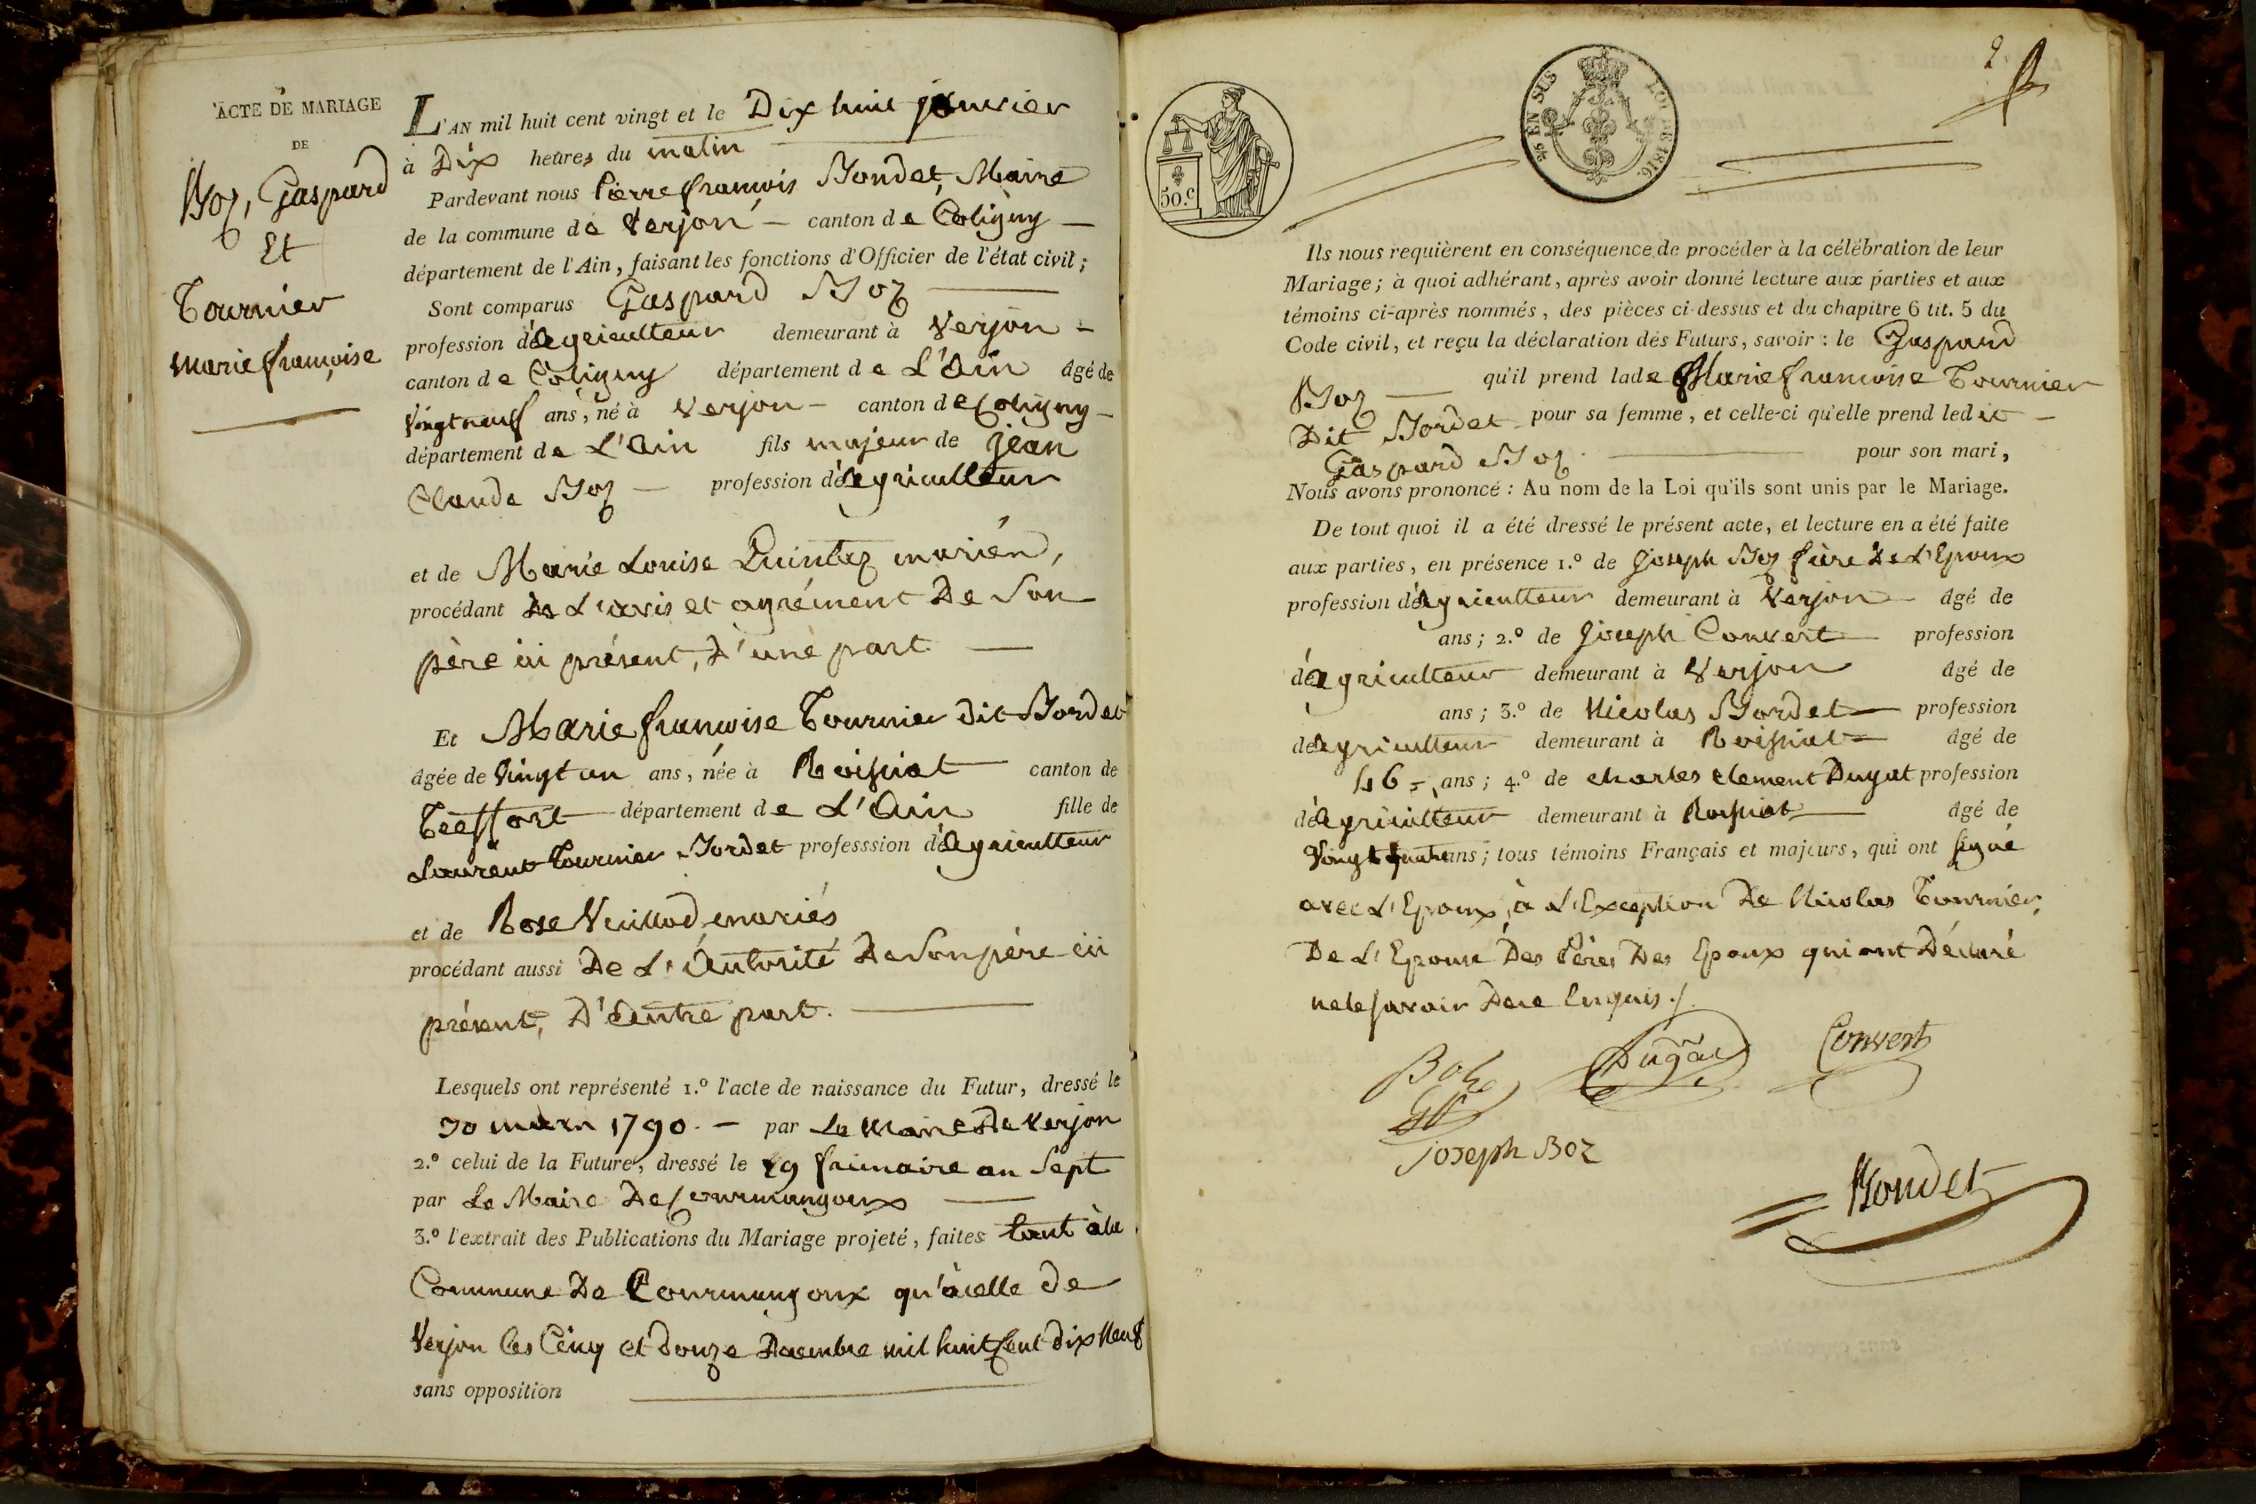 ACTE DE MARIAGE
DE
Boz, Gaspard
Et
Tournier
marie françoise
L'AN mil huit cent vingt et le Dix huit janvier
à Dix heures du matin
Pardevant nous Pierre françois Bondet, Maire
de la commune de Verjon canton de Coligny
département de l'Ain, faisant les fonctions d'Officier de l'état civil;
Sont comparus Gaspard Boz
profession d'agriculteur demeurant à Verjon
canton de Coligny département de L'Ain âgé de
Vingt neuf ans, né à Verjon canton de Coligny
département de L'Ain fils majeur de jean
Claude Boz profession d'agriculteur
et de Marie Louise Quintez mariés,
procédant De L'avis et agrément De Son
père ici présent, D'une part
Et Marie françoise Tournier dit Bordet
âgée de Vingt un ans, née à Roissiat canton de
Treffort département de L'Ain fille de
Laurent Tournier Bordet professsion d'agriculteur
et de Rose Vuillod mariés
procédant aussi De L'Autorité De Son père ici
présent, D'autre part.
Lesquels ont représenté 1.º l'acte de naissance du Futur, dressé le
30 mars 1790. par Le Maire De Verjon
2.º celui de la Future, dressé le 29 frimaire an Sept
par Le Maire De Courmangoux
3.º l'extrait des Publications du Mariage projeté, faites tant à la
Commune De Courmangoux qu'à celle de
Verjon les Cinq et douze Décembre mil huit Cent dix Neuf
sans opposition
2
50.c
EN SUS
LOI DE 1816.
Ils nous requièrent en conséquence de procéder à la célébration de leur
Mariage; à quoi adhérant, après avoir donné lecture aux parties et aux
témoins ci-après nommés, des pièces ci-dessus et du chapitre 6 tit. 5 du
Code civil, et reçu la déclaration des Futurs, savoir : le Gaspard
Boz qu'il prend lade Marie françoise Tournier
Dit Bordet pour sa femme, et celle-ci qu'elle prend ledit
Gaspard Boz pour son mari,
Nous avons prononcé : Au nom de la Loi qu'ils sont unis par le Mariage.
De tout quoi il a été dressé le présent acte, et lecture en a été faite
aux parties, en présence 1.º de Joseph Boz frère De L'Epoux
profession d'agriculteur demeurant à Verjon âgé de
ans; 2.º de Joseph Convert profession
d'agriculteur demeurant à Verjon âgé de
ans; 3.º de Nicolas Bordet profession
d'agriculteur demeurant à Roissiat âgé de
46 ans; 4.º de charles clement Dugat profession
d'agriculteur demeurant à Roissiat âgé de
Vingt quatre ans; tous témoins Français et majeurs, qui ont signé
avec L'Epoux, à L'Exception De Nicolas Tournier,
De L'Epouse Des Pères Des Epoux qui ont Déclaré
ne le savoir De ce Enquis ./.
Boz
Dugat
Convert
Joseph Boz
Bondet